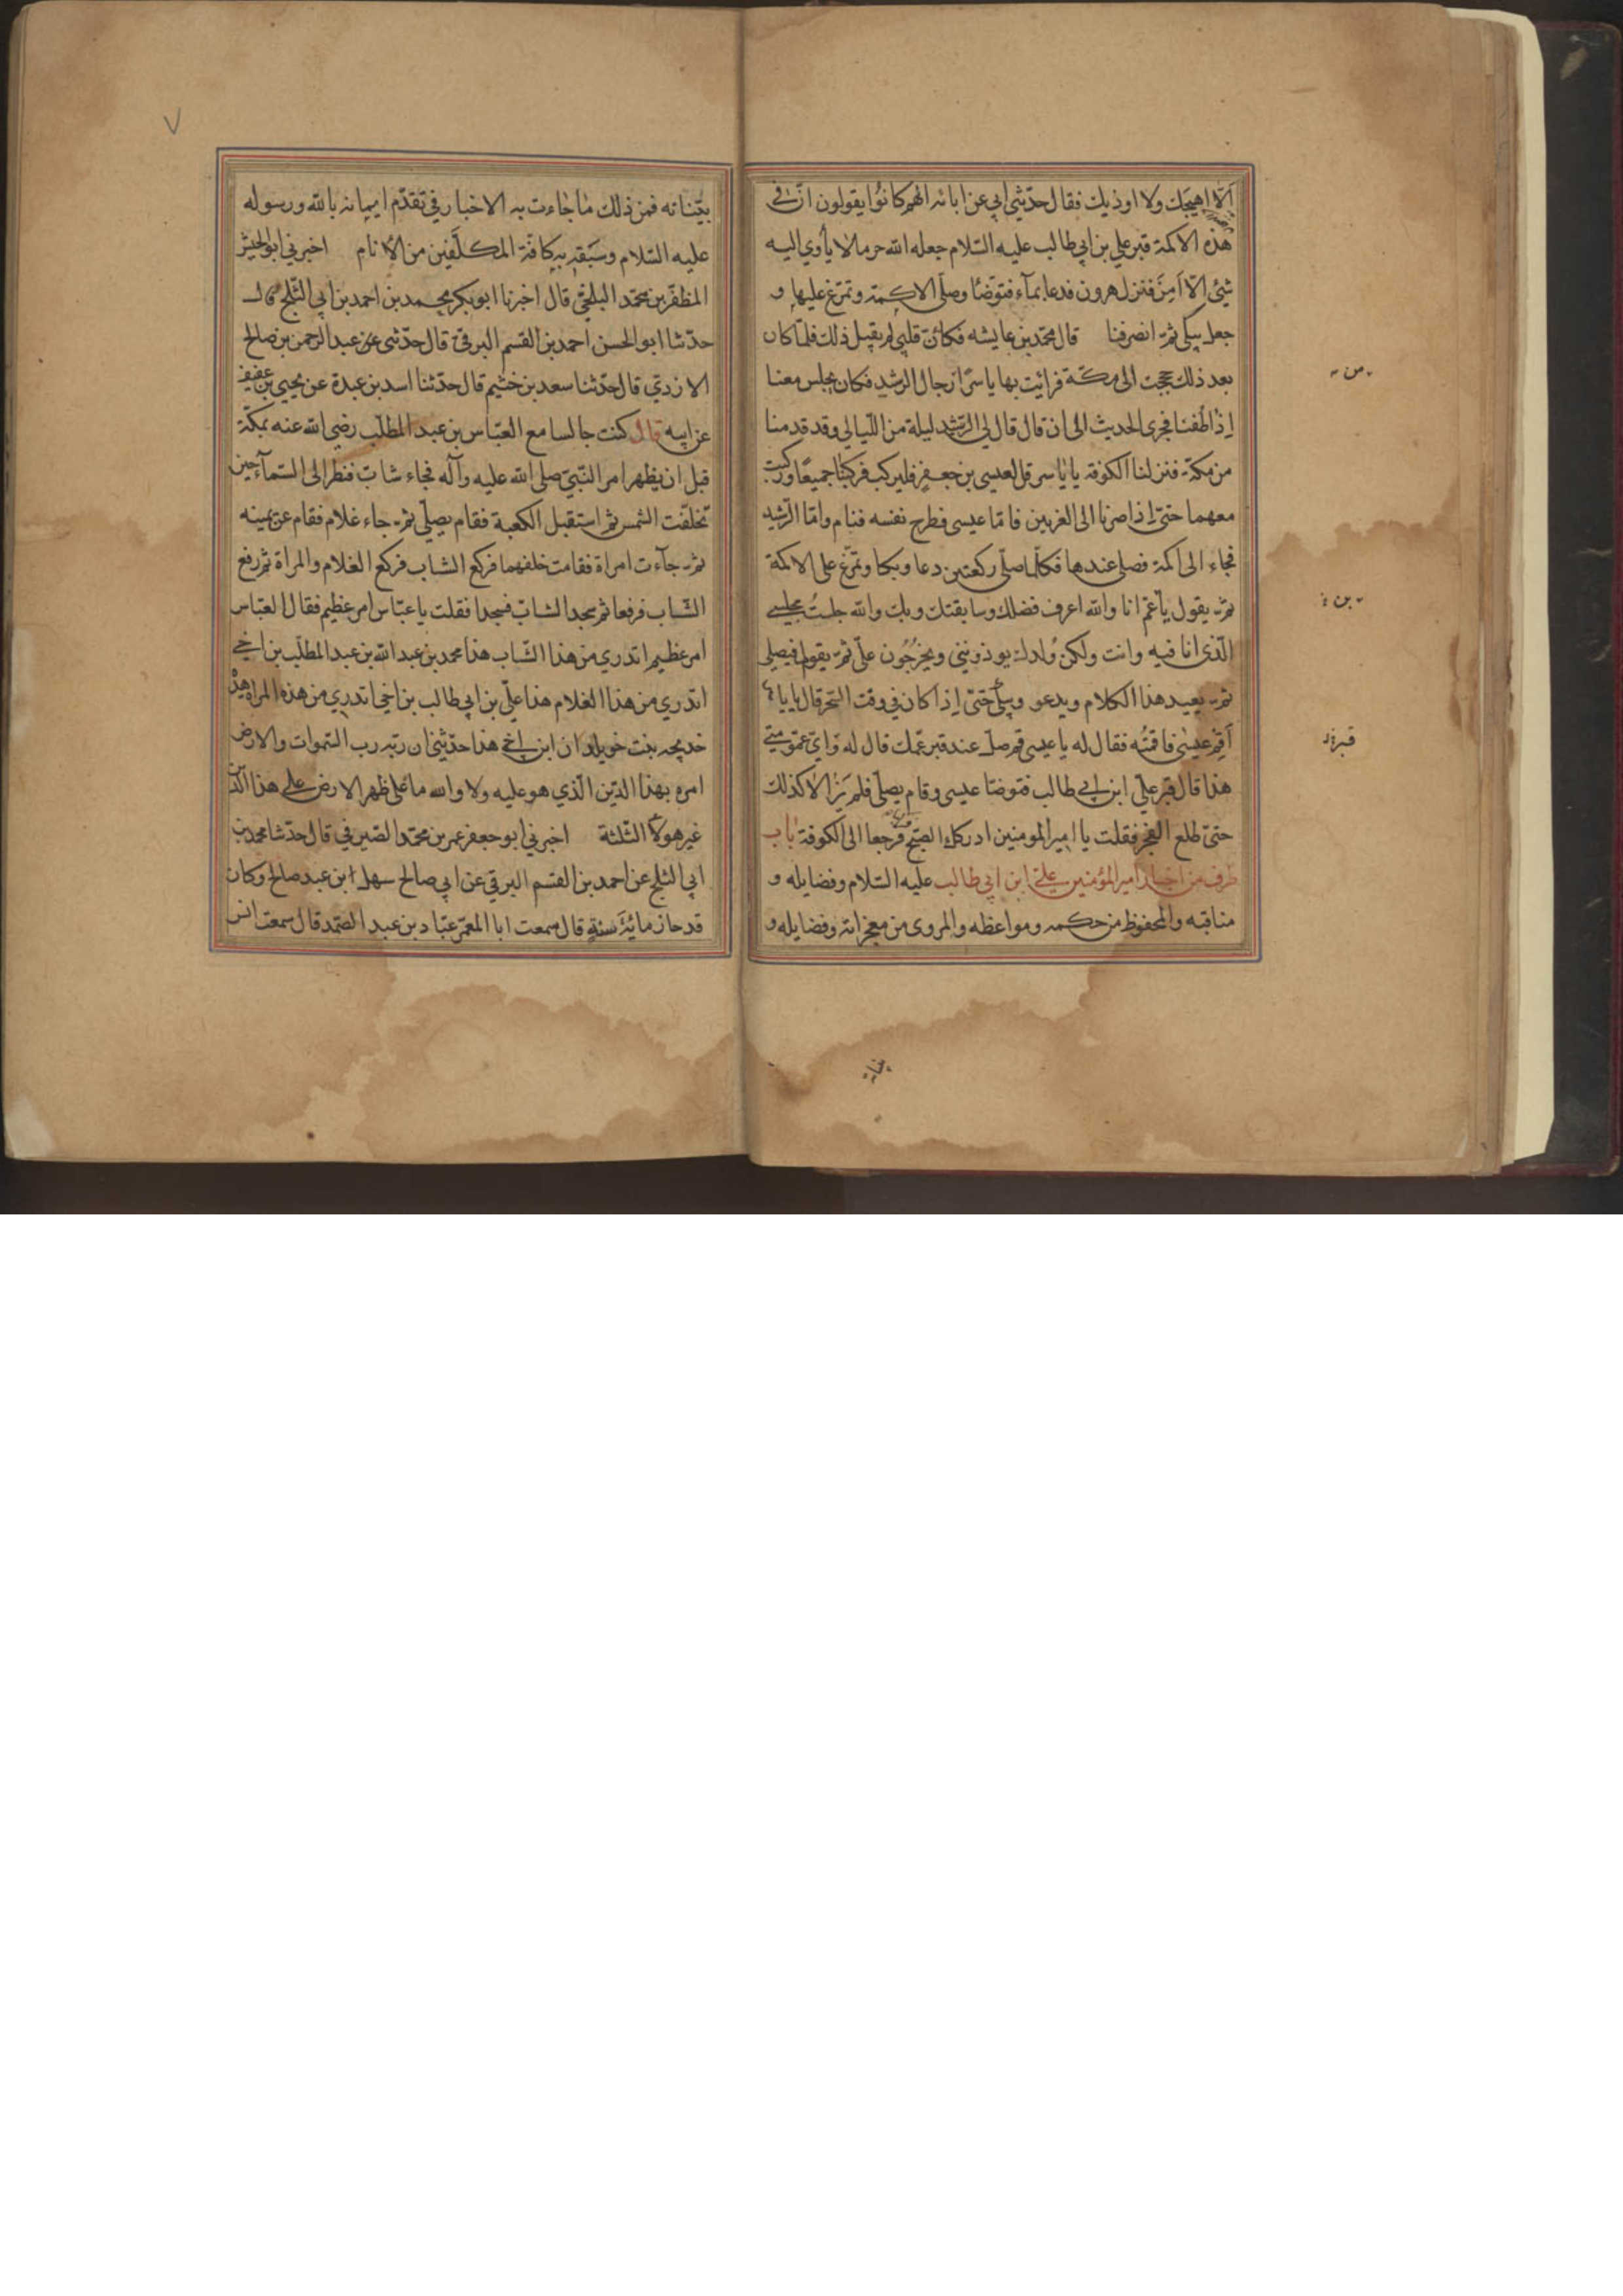 ألّا اهيجك ولا اوذيك فقال حدّثني ابي عن ابائه انهم كانوا يقولون انّ في
هذه الاكمة قبر علي بن ابي طالب عليه السّلام جعله الله حرما لا يأوي اليه
شئ الّا اَمِنَ فنزل هرون فدعا بمآء فتوضّأ وصلّى الاكمة وتمرّغ عليها و
جعل يبكي ثمّ انصرفنا قال محمّد بن عايشه فكانّ قلبي لم يقبل ذلك فلمّا كان
بعد ذلك حججت الى مكّة فرايت بها ياسرًا رجال الرشيد فكان يجلس معنا
اِذا طُفنا فجرى الحديث الى ان قال قال لي الرّشيد ليلة من اللّيالي وقد قدمنا
من مكّة فنزلنا الكوفة يا ياسر قل لعيسى بن جعفر فليركب فركبا جميعًا وركبت
معهما حتى اِذا صرنا الى الغريين فامّا عيسى فطرح نفسه فنام وامّا الرّشيد
فجاء الى اكمة فصلى عندها فكلّما صلّى ركعتين دعا وبكا وتمرّغ على الاكمة
ثمّ يقول يا عمّ انا والله اعرف فضلك وسابقتك وبك والله جلستُ مجلسي
الّذي انا فيه وانت ولكن وُلدك يوذونني ويخرُجُون علىّ ثمّ يقوم فيصلى
ثمّ يعيد هذا الكلام ويدعو ويبكي حتّى اِذا كان في وقت السّحر قال يا يا
اَقِم عيسى فاقمتُه فقال له يا عيسى قم صلّ عند قبر عمّك قال له وايّ عمومتي
هذا قال قبر علي ابن ابي طالب فتوضّا عيسى وقام يصلّى فلم يَزالا كذلك
حتىّ طلع الفجر فقلت يا امير المومنين ادركك الصّبح فرجعا الى الكوفة باب
طرف من اخبار امير المؤمنين علىّ ابن ابي طالب عليه السّلام وفضايله و
مناقبه والمحفوظ من حكمه ومواعظه والمروى من معجزاته وفضايله و
من
بن
قبر
بيّناته
بيّناته فمن ذلك ما جاءت به الاخبار في تقدّم ايمانه بالله ورسوله
عليه السّلام وسَبَقِه به كافّة المكلّفين من الأنام اخبرني ابو الجيش
المظفّر بن محمّد البلخيّ قال اخبرنا ابو بكر محمد بن احمد بن ابي الثّلج قال
حدّثنا ابو الحسن احمد بن القسم البرقيّ قال حدّثنى عن عبد الرّحمن بن صالح
الازديّ قال حدّثنا سعد بن خثيم قال حدّثنا اسد بن عبدة عن يحيى بن عفيف
عن ابيه قال كنت جالسا مع العبّاس بن عبد المطّلب رضى الله عنه بمكّة
قبل ان يظهر امر النّبيّ صلى الله عليه وآله فجاء شابّ فنظر الى السّمآء حين
تحلّقت الشمس ثمّ استقبل الكعبة فقام يصلّي ثمّ جاء غلام فقام عن يمينه
ثمّ جآءت امراة فقامت خلفهما فركع الشاب فركع الغلام والمراة ثم رفع
الشّاب فرفعا ثم سجد الشابّ فسجدا فقلت يا عبّاس امر عظيم فقال العبّاس
امر عظيم اتدري من هذا الشّاب هذا محمد بن عبد الله بن عبد المطلّب بن اخي
اتدري من هذا الغلام هذا علّي بن ابي طالب بن اخي اتدري من هذه المراة هذه
خديجه بنت خويلد ان ابن اخي هذا حدّثني ان ربّه رب السّموات والارض
امره بهذا الدّين الّذي هو عليه ولا والله ما على ظهر الارض على هذا الدّين
غير هولآء الثّلثة اخبرني ابو جعفر عمر بن محمّد الصّيرفي قال حدّثنا محمد بن
ابي الثلج عن احمد بن القسم البرقي عن ابي صالح سهل ابن عبد صالح وكان
قد جاز مائة سنةٍ قال سمعت ابا المعمّر عبّاد بن عبد الصّمد قال سمعت انس
٧